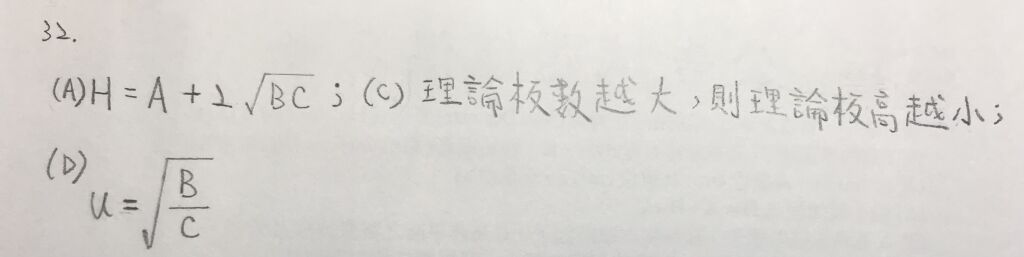 32.
(A) H = A + 2√BC ; (C) 理論板數越大,則理論板高越小;
(D) u = √(B/C)